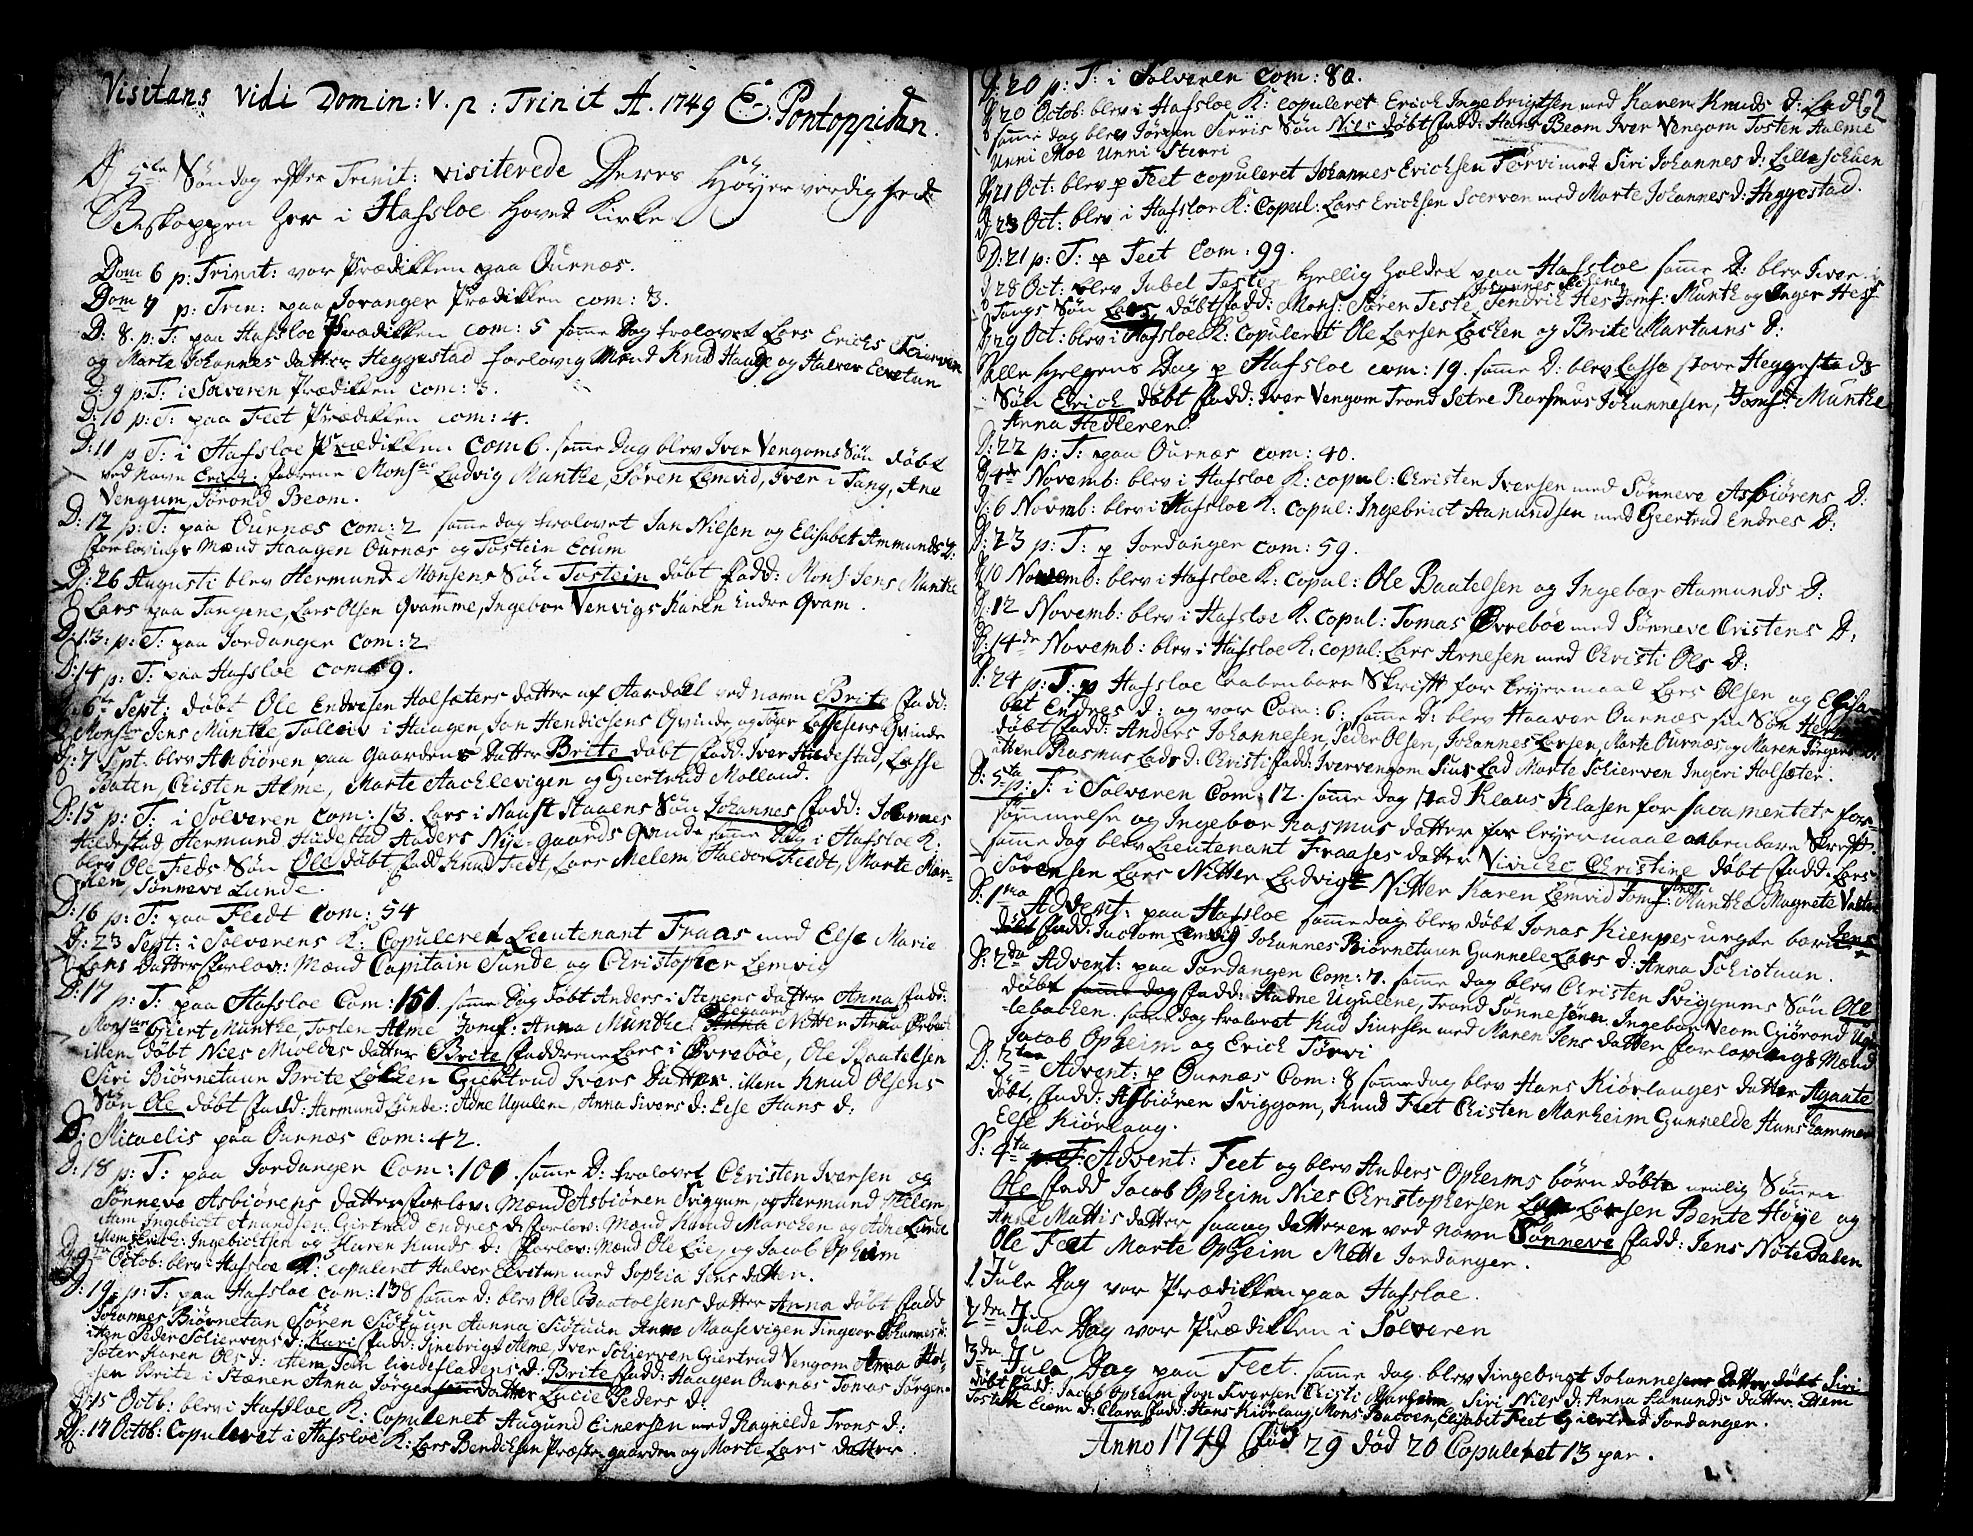 Visitans vidi Domin: V. p: Trinit A. 1749 E: Pontoppidan.
D 5te Søndag efter Trinit: visiterede Deres Høyerverdighed
Biskoppen her i Hafsloe Hoved Kirke
Dom 6 p: Trinit: var Prædikken paa Ournæs.
Dom 7 p: Trin: paa Joranger Prædikken com: 3.
D: 8. p: T: paa Hafsloe Prædikken com: 5 samme Dag trolovet Lars Erichs Scierven
og Marte Johannes datter Heggestad forlovings Mænd Knud Hauge og Halvor Elvetun
D: 9 p: T: i Solveren Prædikken com: 3.
D: 10 p: T: paa Feet Prædikken com: 4.
D: 11 p T: i Hafsloe Prædikken com 6. samme Dag blev Iver Vengoms Søn døbt
ved navn Erich: fadderne Monsr Ludvig Munthe, Søren Lemvid, Iver i Tang, Ane
Vengum, Jørond Beom.
D: 12 p: T: paa Ournæs com: 2 samme dag trolovet Jan Nilsen og Elisabet Ammunds D:
forlovings Mænd Haagen Ournæs og Tostein Ecum
D: 26 Augusti blev Hermund Monsens Søn Tostein døbt fadd: Mons Jens Munthe
Lars paa Tangene, Lars Olsen Qvamme, Ingebor Venvigs Karen Endre Qvam.
D: 13: p: T: paa Jordanger com: 2
D: 14 p: T: paa Hafsloe com 9.
D 6te Sept: døbt Ole Endresen Holsæters datter af Aardal ved navn Brite fadd:
Monsr Jens Munthe, Tolleiv i Haagen, Jan Hendicsens Qvinde og Joger Lassesens Qvinde
D: 7 Sept. blev Anbiøren paa Gaardens datter Brite døbt fadd: Iver Hildestad, Lasse
Baten, Christen Alme, Marte Aachlevigen og Giertrud Molland.
D: 15 p: T: i Solveren com: 13. Lars i Naust staaens Søn Johannes fadd: Johannes
Hildestad Hermund Hildestad Anders Nye-Gaards Qvinde samme Dag i Hafsloe K.
blev Ole Feds Søn Ole døbt fadd Knud Fedt, Lars Melem Haldor Fedt, Marte Mar-
Sønneve Lunde.
D: 16 p: T: paa Fedt Com: 54
D: 23 Sept: i Solverens K: Copuleret Lieutenant Fraas med Else Marie
Lars Datter forlov: Mænd Capitain Sunde og Christopher Lemvig
D: 17 p: T: paa Hafsloe Com: 151. samme Dag døbt Anders i Stenens datter Anna fadd:
Monsr Giert Munthe, Tosten Alme Jomf: Anna Munthe Nitter Anna
item døbt Niels Moldes datter Brite fadderne Lars i Øvrebøe, Ole Baatelsen
Siri Biørnetuun Brite Løkken Giertrud Ivers Datter: item Knud Olsens
Søn Ole døbt fadd: Hermund Lunde: Adne Ugulene, Anna Sivers d: Else Hans d:
D: Micaelis paa Ournæs Com: 42.
D: 18 p: T: paa Jordanger Com: 100. samme D: trolovet Christen Iversen og
Sønneve Asbiørens datter forlov: Mænd Asbiøren Sviggum, og Hermund Melem,
item Ingebrict Amundsen Giertrud Endres d: forlov: Mænd Knud Marchen og Adne Lunde
item Erich: Ingebrictsen og Karen Knuds d: forlov: Mænd Ole Lie, og Jacob Opheim
D: 9 Octob: blev i Hafsloe K: copuleret Halvor Elvetun med Sophia Jens datter.
D: 19. p: T: paa Hafsloe com: 138 samme d: blev Ole Baatolsens datter Anna døbt fadd
Johannes Biørnetun Søren Siøtuun Anna Siøtuun Anne Maasevigen Jingbor Johannes d:
item Peder Schiervens d: Kari fadd: Jinebrigt Alme, Iver Schierven Giertrud Vengom Anna Hol-
sæter Karen Ols d: item Jan Lindesladens d: Brite fadd: Haagen Ournæs Tomas Jørgen-
sen Brite i Stænen Anna Jørgensen datter Lucie Peders d:
D: 15 Octb: blev i Hafsloe K: Copuleret Augund Einersen med Ragnelde Trons d:
D: 17 Octob: Copuleret i Hafsloe K: Lars Bendiksen Præstegaarden og Marte Lars datter
D: 20 p: T: i Solveren com: 80.
D 20 Octob: blev i Hafsloe K: copuleret Erich Ingebrigtsen med Karen Knuds D:
samme dag blev Jørgen Sterris Søn Niels døbt fadd: Hans Beom Iver Vengom Tosten Halme
Unni Moe Unni Sterri
D: 21 Oct: blev p Feet copuleret Johannes Erichsen Tørvi med Siri Johannes d: Lille schuen
D: 23 Oct: blev i Hafsloe K: Copul: Lars Erichsen Scerven med Marte Johannes d: Heggestad.
D: 21 p: T: p Feet Com: 99.
D 28 Oct: blev Jubel Festen Hellig Holdet paa Hafsloe samme D: blev Iver i
Tangs Søn Lars døbt fadd: Mons: Søren Teste Hendrich Hes Jomf: Munthe og Inger Hess
D: 29 Oct: blev i Hafsloe K: Copuleret Ole Larsen Løcken og Brite Martuens D:
Alle Helgens Dag p Hafsloe com: 19. samme D: blev Lasse store Heggestads
Søn Erich døbt fadd: Iver Vengom Trond Setre Rasmus Johannesen, Jomf: Munthe
Anna Hedleren.
D: 22 p: T: paa Ournæs com: 40.
D: 4de Novemb: blev i Hafsloe K: copul: Christen Iversen med Sønneve Asbiørens D:
D: 6 Novemb: blev i Hafsloe K. Copul: Ingebrict Aamundsen med Geertrud Endres D:
D: 23 p: T: p Jordanger com: 59.
D 10 Novemb: blev i Hafsloe K: Copul: Ole Baatelsen og Ingebor Aamunds D:
D: 12 Novemb: blev i Hafsloe K. Copul: Tomas Øvrebøe med Sønneve Cristens D:
D: 14de Novemb: blev i Hafsloe K: copul: Lars Arnesen med Christi Ols D:
D: 24 p: T: p Hafsloe aabenbare Skrift for leyermaal Lars Olsen og Elisa-
bet Endres d: og var Com: 6: samme D: blev Haavor Ournæs sin Søn
døbt fadd: Anders Johannesen, Peder Olsen, Johannes Larsen, Marte Ournæs, og Maren Jørgens
item Rasmus Lads d: Christi fadd: Iver vengom Siur Lad Marte Schierven Ingeri Holsæter.
D: 25ta p: T: i Solveren Com: 12. samme dag stod Klaus Klasen for sacramentets for-
sømmelse og Ingebor Rasmus datter for leyermaal aabenbare Skrift.
samme dag blev Lieutenant Fraases datter Vivicke Christine døbt fadd: Lars
Sørensen Lars Nitter Ludvigt Nitter Karen Lemvid Jomf: Munthe Magrete
D: 1ma Advent: paa Hafsloe samme dag blev døbt Jonas Kiempes uegte barn Jens
døbt fadd: Jackom Lemvig Johannes Biørnetuun Gunnele Lars d: Anna Schiotuun.
D: 2da Advent: paa Jordangen Com: 7. samme dag blev Christen Sviggums Søn Ole
døbt samme dag fadd: Aadne Ugulene, Trond Sønnesøen. Ingebor Veom Giørond
lebacken. samme dag trolovet Knd Siursen med Maren Jens datter forlovings Mænd
Jacob Opheim og Erich Tørvi
D: 3tia Advent: p Ournæs Com: 8 samme dag blev Hans Kiørlauges datter Agaate
døbt, fadd: Asbiøren Sviggom, Knud Feet Christen Marheim Gunnelde Hanshammer
Else Kiørlaug.
D: 4ta p: T: Advent: Feet og blev Anders Opheims børn døbte nemlig Sønnen
Ole fadd Jacob Opheim Niels Christophersen Lars Larsen Bente Høye og
Anne Mattis datter saa og datteren ved navn Sønneve fadd: Jens Nøte Dalen
Ole Feet Marte Opheim Mette Jordanger.
1 Jule Dag var Prædikken paa Hafsloe.
2den Jule Dag var Prædikken i Solveren
3die Jule Dag paa Feet. samme dag blev Jingebrigt Johannesens Datter døbt Siri
døbt fadd: Jacob Opheim Jon Siversen Christi Marheim Siri Niels d: Anna Aamunds datter. Item
Tostein Ecem d: Clara fadd: Hans Kiørlaug, Mons Elisabet Feet Giertrud Jordangen.
Anno 1749 fød 29 død 20 Copuleret 13 par.